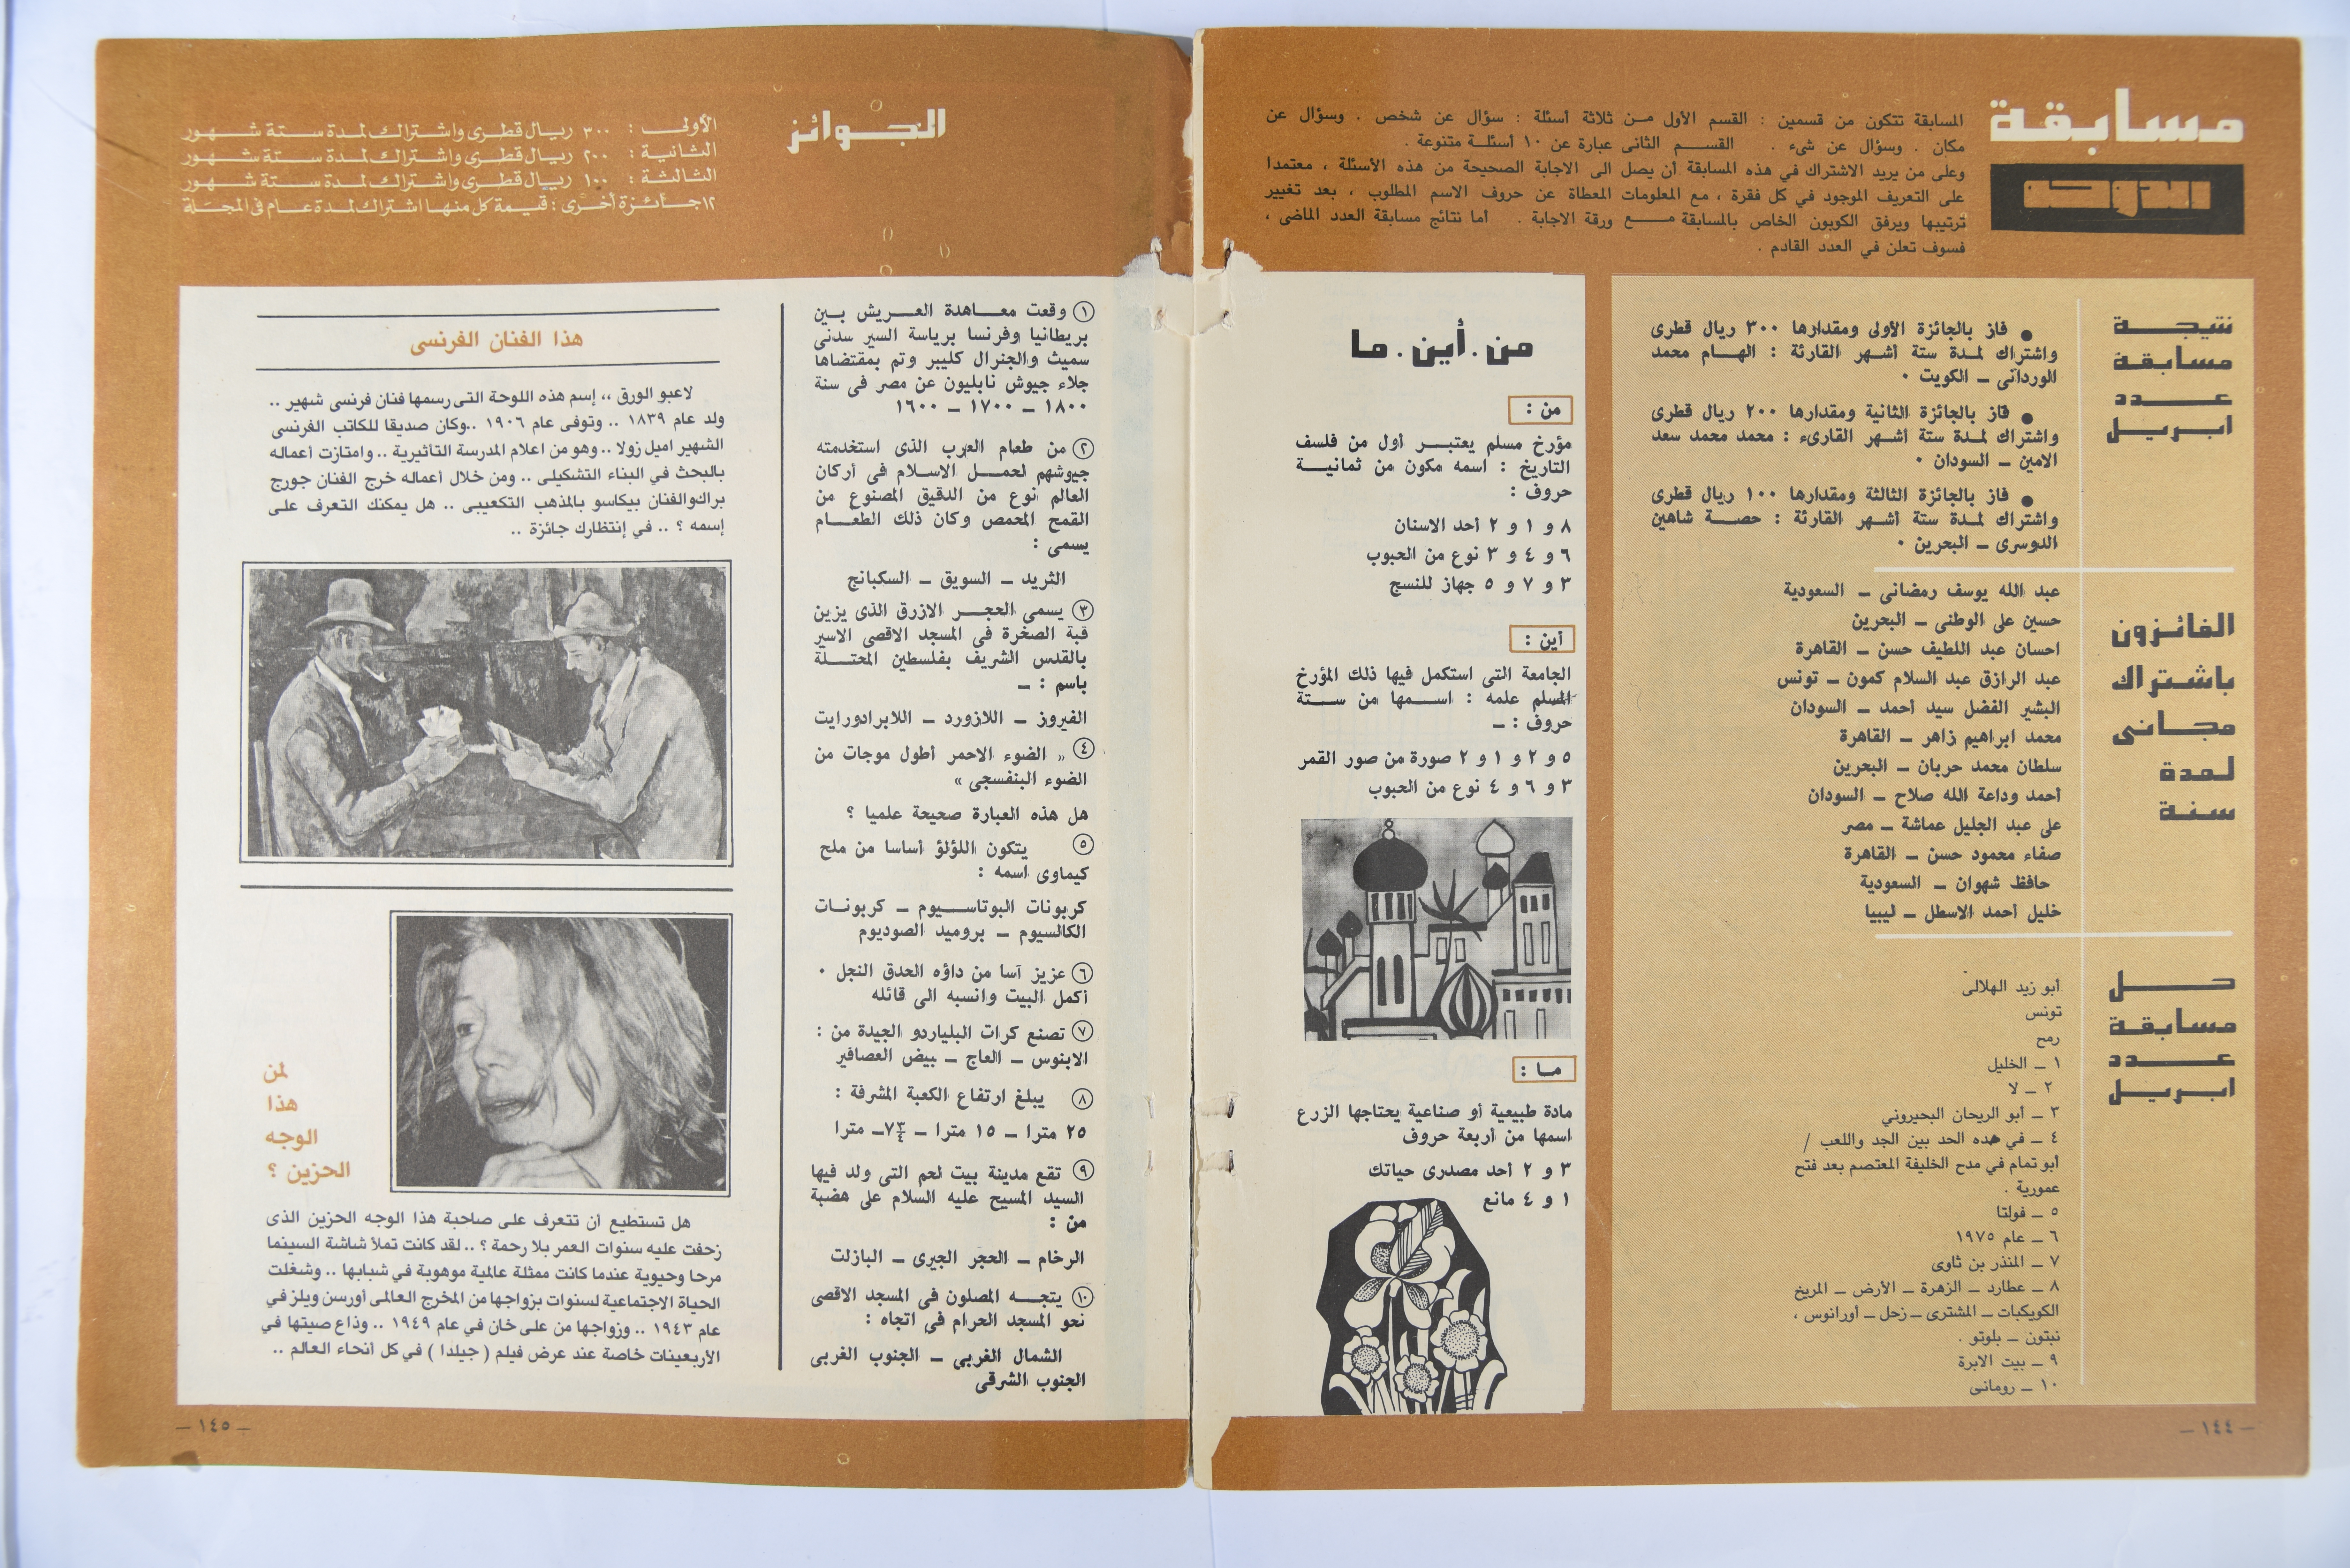 مسابقة
الدوحة
المسابقة تتكون من قسمين : القسم الأول من ثلاثة أسئلة : سؤال عن شخص . وسؤال عن
مكان . وسؤال عن شىء . القسم الثانى عبارة عن ١٠ أسئلة متنوعة .
وعلى من يريد الاشتراك في هذه المسابقة أن يصل الى الاجابة الصحيحة من هذه الأسئلة ، معتمدا
على التعريف الموجود في كل فقرة ، مع المعلومات المعطاة عن حروف الاسم المطلوب ، بعد تغيير
ترتيبها ويرفق الكوبون الخاص بالمسابقة مع ورقة الاجابة . أما نتائج مسابقة العدد الماضى ،
فسوف تعلن في العدد القادم .
نتيجة
مسابقة
عدد
ابريل
● فاز بالجائزة الأولى ومقدارها ٣٠٠ ريال قطرى
واشتراك لمدة ستة أشهر القارئة : الهام محمد
الوردانى – الكويت .
● فاز بالجائزة الثانية ومقدارها ٢٠٠ ريال قطرى
واشتراك لمدة ستة أشهر القارىء : محمد محمد سعد
الامين – السودان .
● فاز بالجائزة الثالثة ومقدارها ١٠٠ ريال قطرى
واشتراك لمدة ستة أشهر القارئة : حصة شاهين
الدوسرى – البحرين .
الفائزون
باشتراك
مجانى
لمدة
سنة
عبد الله يوسف رمضانى – السعودية
حسين على الوطنى – البحرين
احسان عبد اللطيف حسن – القاهرة
عبد الرازق عبد السلام كمون – تونس
البشير الفضل سيد أحمد – السودان
محمد ابراهيم زاهر – القاهرة
سلطان محمد حربان – البحرين
أحمد وداعة الله صلاح – السودان
على عبد الجليل عماشة – مصر
صفاء محمود حسن – القاهرة
حافظ شهوان – السعودية
خليل أحمد الاسطل – ليبيا
حل
مسابقة
عدد
ابريل
أبو زيد الهلالى
تونس
رمح
١ – الخليل
٢ – لا
٣ – أبو الريحان البحيرونى
٤ – في هده الحد بين الجد واللعب /
أبو تمام في مدح الخليفة المعتصم بعد فتح
عمورية .
٥ – فولتا
٦ – عام ١٩٧٥
٧ – المنذر بن ثاوى
٨ – عطارد – الزهرة – الأرض – المريخ
الكويكبات – المشترى – زحل – أورانوس ،
نبتون – بلوتو .
٩ – بيت الابرة
١٠ – رومانى
– ١٤٤ –
من . أين . ما
من :
مؤرخ مسلم يعتبر أول من فلسف
التاريخ : اسمه مكون من ثمانية
حروف :
٨ و ١ و ٢ أحد الاسنان
٦ و ٤ و ٣ نوع من الحبوب
٣ و ٧ و ٥ جهاز للنسج
أين :
الجامعة التى استكمل فيها ذلك المؤرخ
المسلم علمه : اسمها من ستة
حروف : –
٥ و ٢ و ١ و ٢ صورة من صور القمر
٣ و ٦ و ٤ نوع من الحبوب
ما :
مادة طبيعية أو صناعية يحتاجها الزرع
اسمها من أربعة حروف
٣ و ٢ أحد مصدرى حياتك
١ و ٤ مانع
الجوائز
الأولى : ٣٠٠ ريال قطرى واشتراك لمدة ستة شهور
الثانية : ٢٠٠ ريال قطرى واشتراك لمدة ستة شهور
الثالثة : ١٠٠ ريال قطرى واشتراك لمدة ستة شهور
١٢ جائزة أخرى : قيمة كل منها اشتراك لمدة عام فى المجلة
١ وقعت معاهدة العريش بين
بريطانيا وفرنسا برياسة السير سدنى
سميث والجنرال كليبر وتم بمقتضاها
جلاء جيوش نابليون عن مصر فى سنة
١٨٠٠ – ١٧٠٠ – ١٦٠٠
٢ من طعام العرب الذى استخدمته
جيوشهم لحمل الاسلام فى أركان
العالم نوع من الدقيق المصنوع من
القمح المحمص وكان ذلك الطعام
يسمى :
الثريد – السويق – السكبانج
٣ يسمى الحجر الازرق الذى يزين
قبة الصخرة فى المسجد الاقصى الاسير
بالقدس الشريف بفلسطين المحتلة
باسم : –
الفيروز – اللازورد – اللابرادورايت
٤ « الضوء الاحمر أطول موجات من
الضوء البنفسجى »
هل هذه العبارة صحيحة علميا ؟
٥ يتكون اللؤلؤ أساسا من ملح
كيماوى اسمه :
كربونات البوتاسيوم – كربونات
الكالسيوم – بروميد الصوديوم
٦ عزيز آسا من داؤه الحدق النجل .
أكمل البيت وانسبه الى قائله
٧ تصنع كرات البلياردو الجيدة من :
الابنوس – العاج – بيض العصافير
٨ يبلغ ارتفاع الكعبة المشرفة :
٢٥ مترا – ١٥ مترا – ٧٣/٤ – مترا
٩ تقع مدينة بيت لحم التى ولد فيها
السيد المسيح عليه السلام على هضبة
من :
الرخام – الحجر الجيرى – البازلت
١٠ يتجه المصلون فى المسجد الاقصى
نحو المسجد الحرام فى اتجاه :
الشمال الغربى – الجنوب الغربى
الجنوب الشرقى
هذا الفنان الفرنسى
لاعبو الورق ،، إسم هذه اللوحة التى رسمها فنان فرنسى شهير ..
ولد عام ١٨٣٩ .. وتوفى عام ١٩٠٦ ..وكان صديقا للكاتب الفرنسى
الشهير اميل زولا .. وهو من اعلام المدرسة التأثيرية .. وامتازت أعماله
بالبحث في البناء التشكيلى .. ومن خلال أعماله خرج الفنان جورج
براك والفنان بيكاسو بالمذهب التكعيبى .. هل يمكنك التعرف على
إسمه ؟ .. في إنتظارك جائزة ..
لمن
هذا
الوجه
الحزين ؟
هل تستطيع أن تتعرف على صاحبة هذا الوجه الحزين الذى
زحفت عليه سنوات العمر بلا رحمة ؟ .. لقد كانت تملأ شاشة السينما
مرحا وحيوية عندما كانت ممثلة عالمية موهوبة في شبابها .. وشغلت
الحياة الاجتماعية لسنوات بزواجها من المخرج العالمى أورسن ويلز في
عام ١٩٤٣ .. وزواجها من على خان في عام ١٩٤٩ .. وذاع صيتها في
الأربعينات خاصة عند عرض فيلم ( جيلدا ) في كل أنحاء العالم ..
– ١٤٥ –